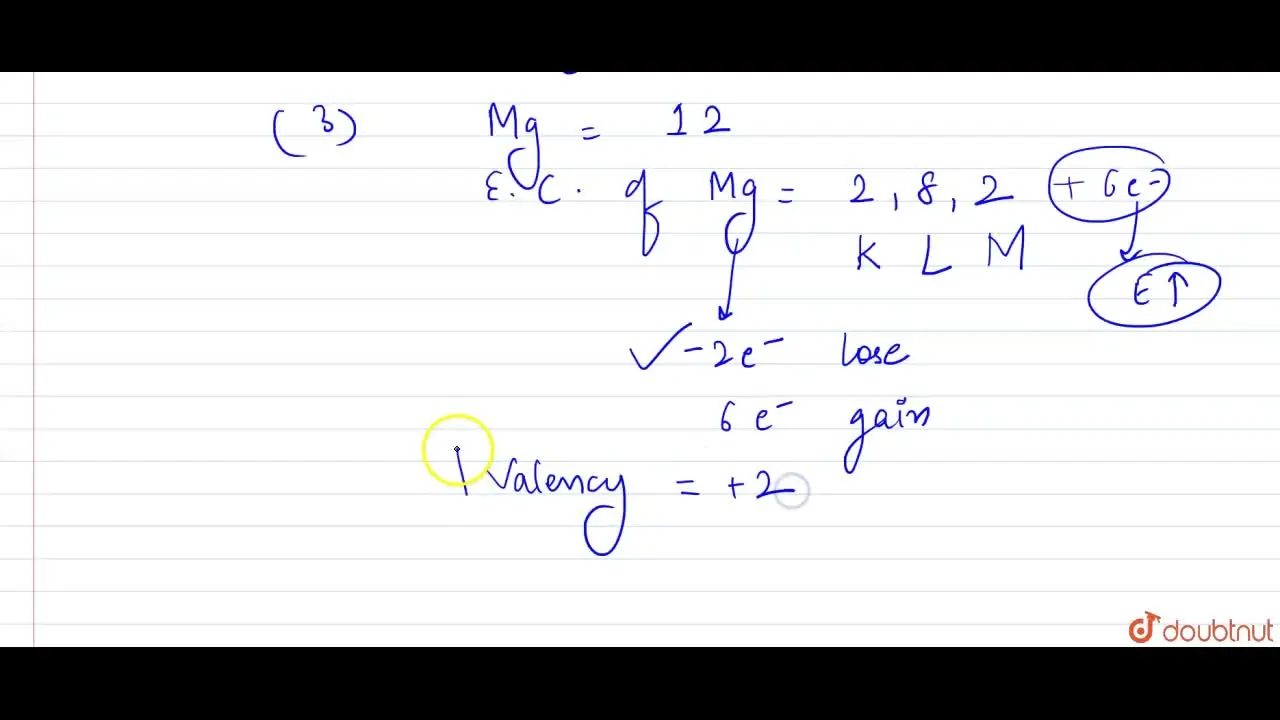 (3) Mg = 12
E.C. of Mg = 2, 8, 2 + 6e-
K L M
E↑
✓ -2e- lose
6e- gain
Valency = +2
doubtnut